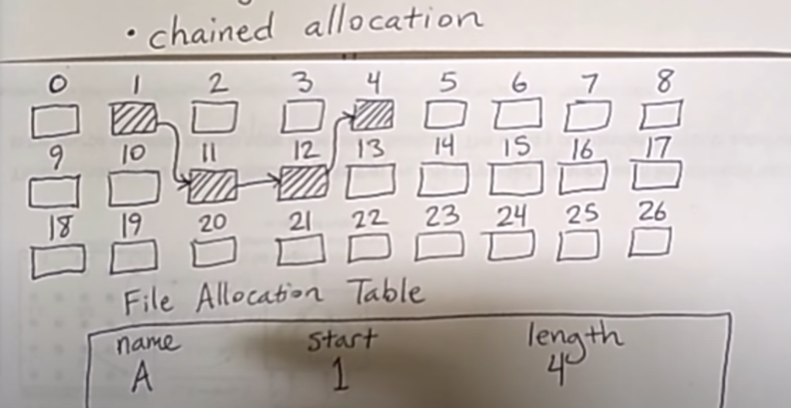 • chained allocation
0 1 2 3 4 5 6 7 8
9 10 11 12 13 14 15 16 17
18 19 20 21 22 23 24 25 26
File Allocation Table
name start length
A 1 4